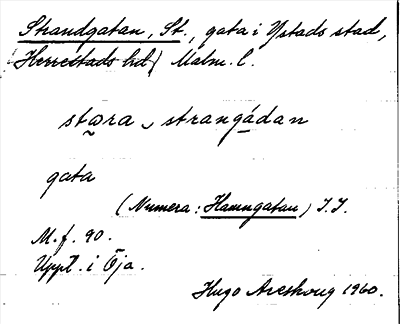 Strandgatan, St., gata i Ystads stad,
(Herrestads hd) Malm. l.
stɷra ᴗ strangádan
gata
(Numera: Hamngatan) I.I.
M.f. 90.
Uppt. i Öja.
Hugo Areskoug 1960.